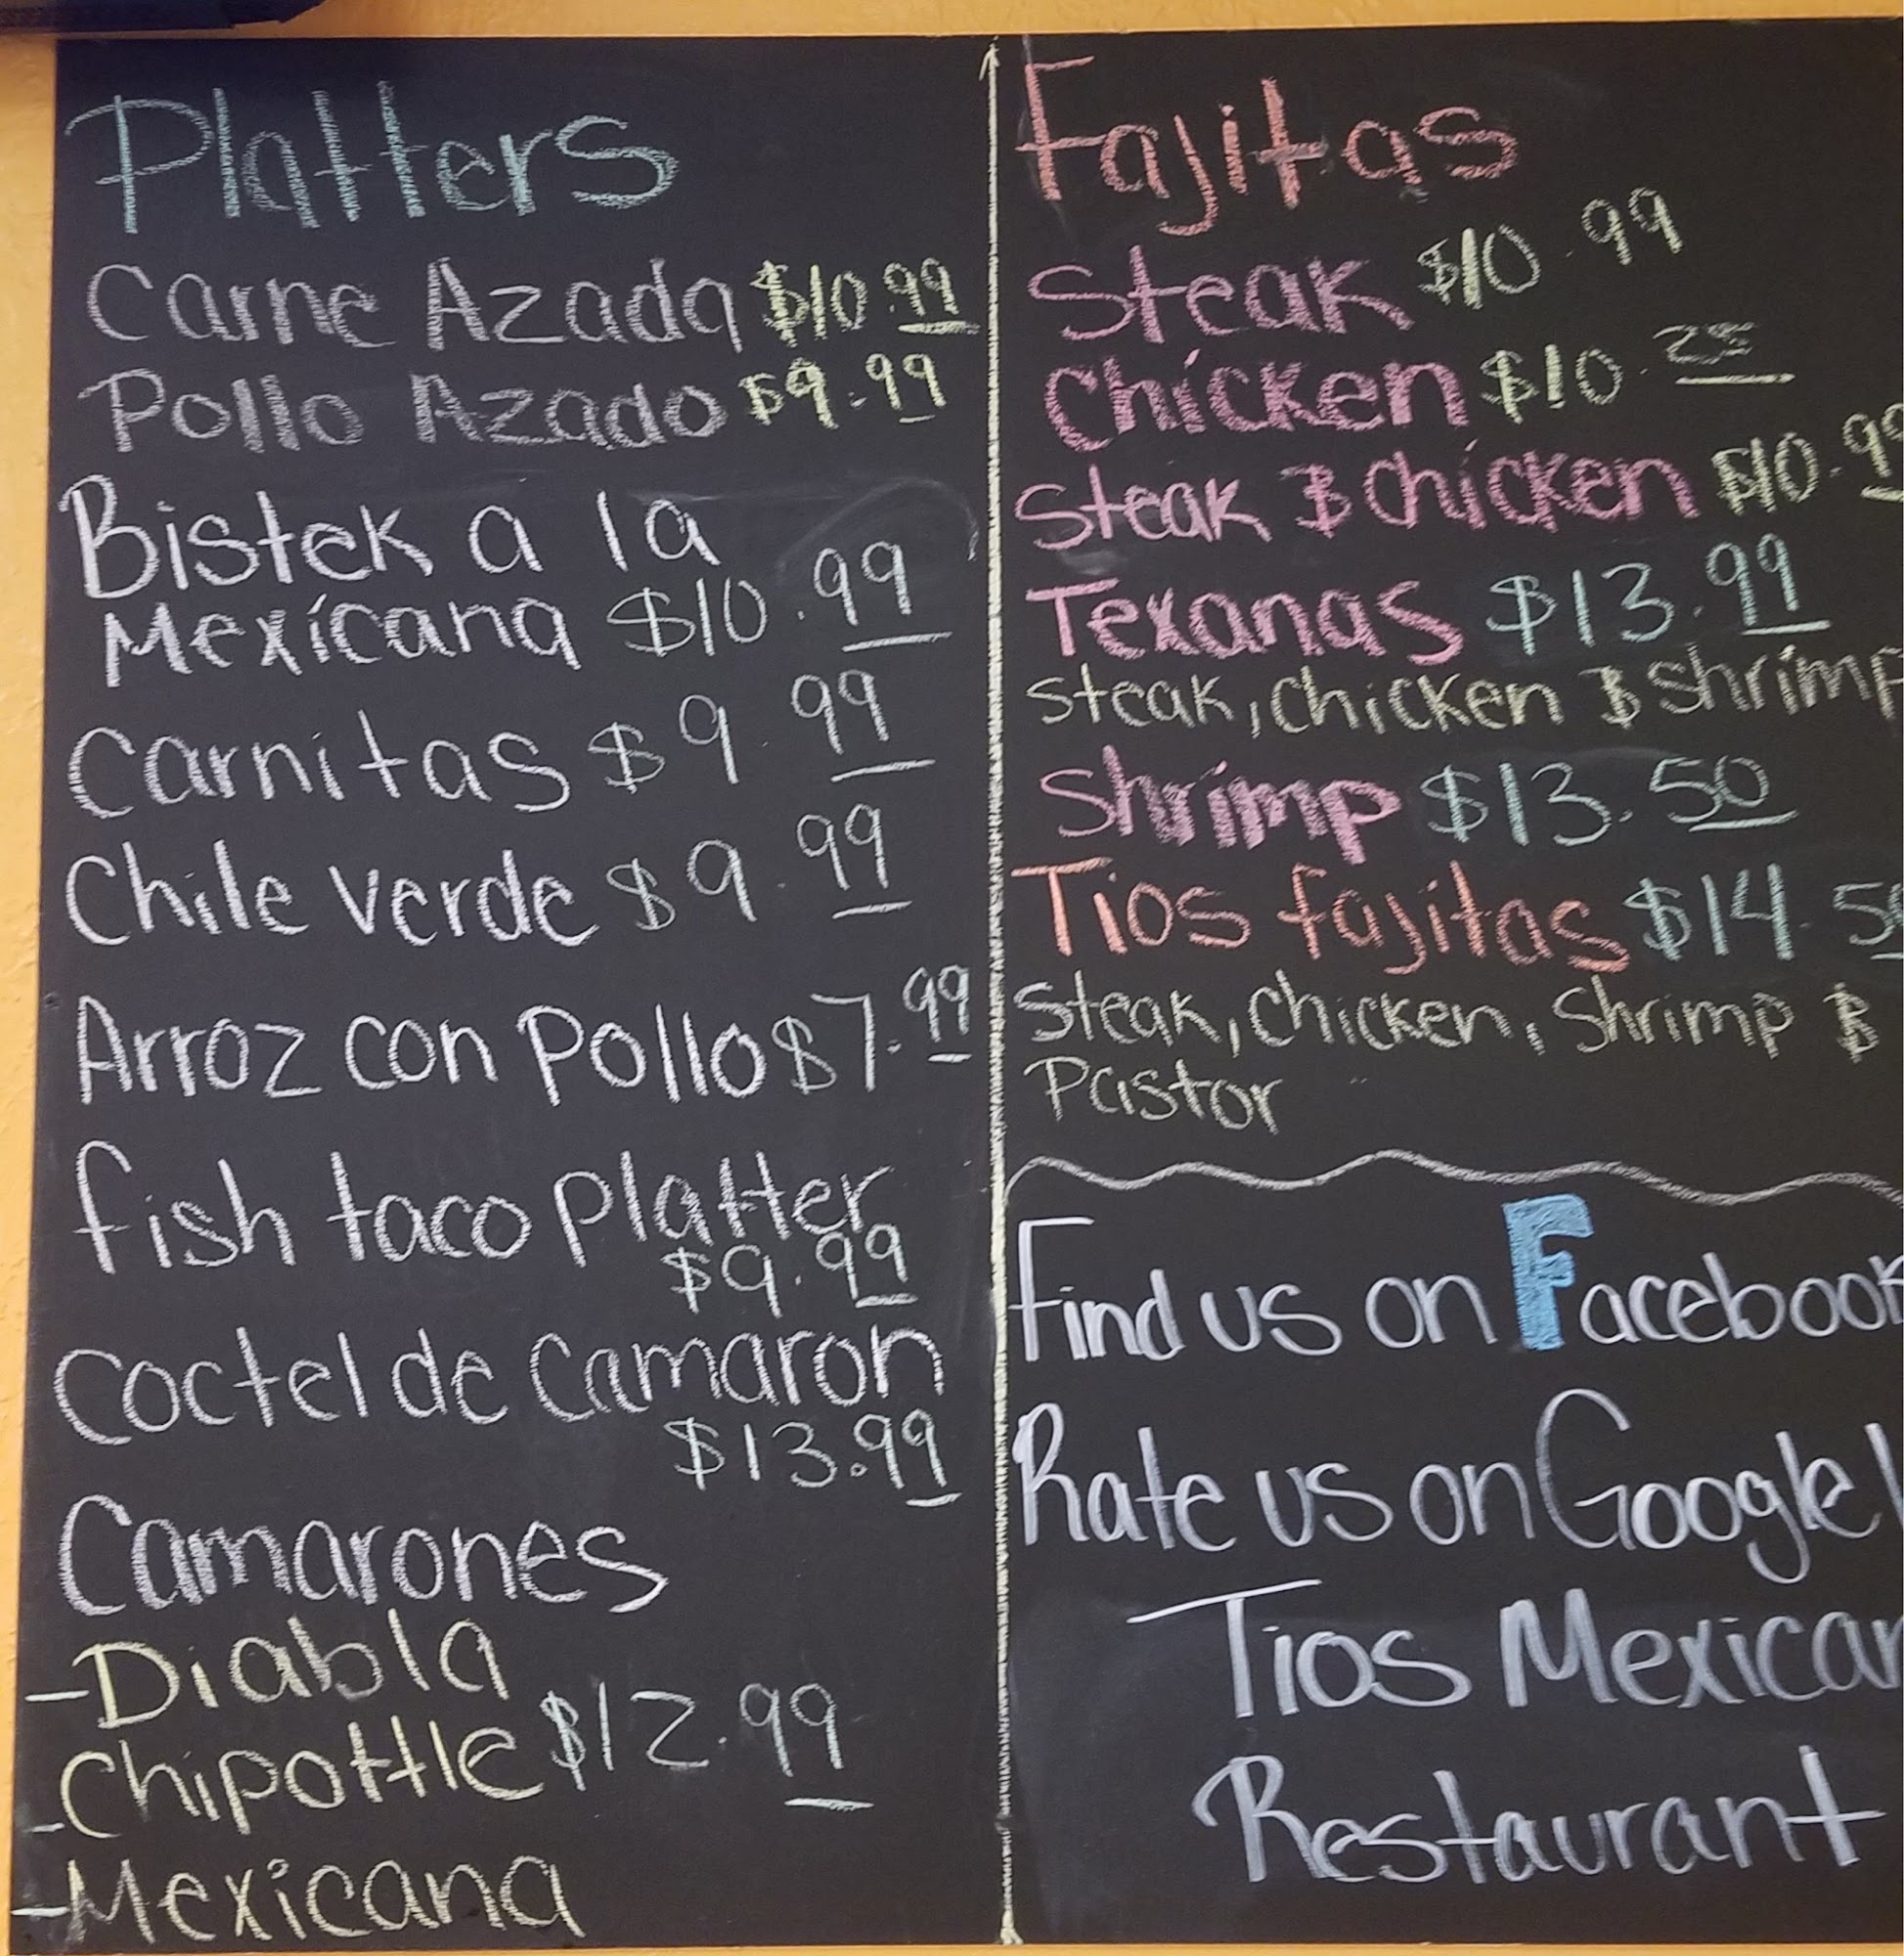 Platters
Carne Azada $10.99
Pollo Azado $9.99
Bistek a la
Mexicana $10.99
Carnitas $9.99
Chile verde $9.99
Arroz con Pollo $7.99
fish taco Platter
$9.99
Coctel de Camaron
$13.99
Camarones
-Diabla
-Chipottle $12.99
-Mexicana
Fajitas
Steak $10.99
Chicken $10.25
Steak & Chicken $10.99
Texanas $13.99
Steak, Chicken & Shrimp
Shrimp $13.50
Tios fajitas $14.50
Steak, Chicken, Shrimp &
Pastor
Find us on Facebook
Rate us on Google!
Tios Mexican
Restaurant